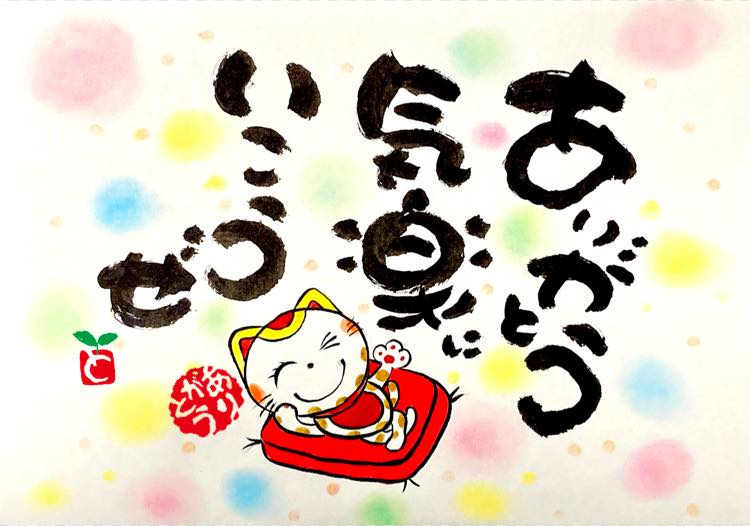 ありがとう
気楽に
いこうぜ
ありがとう